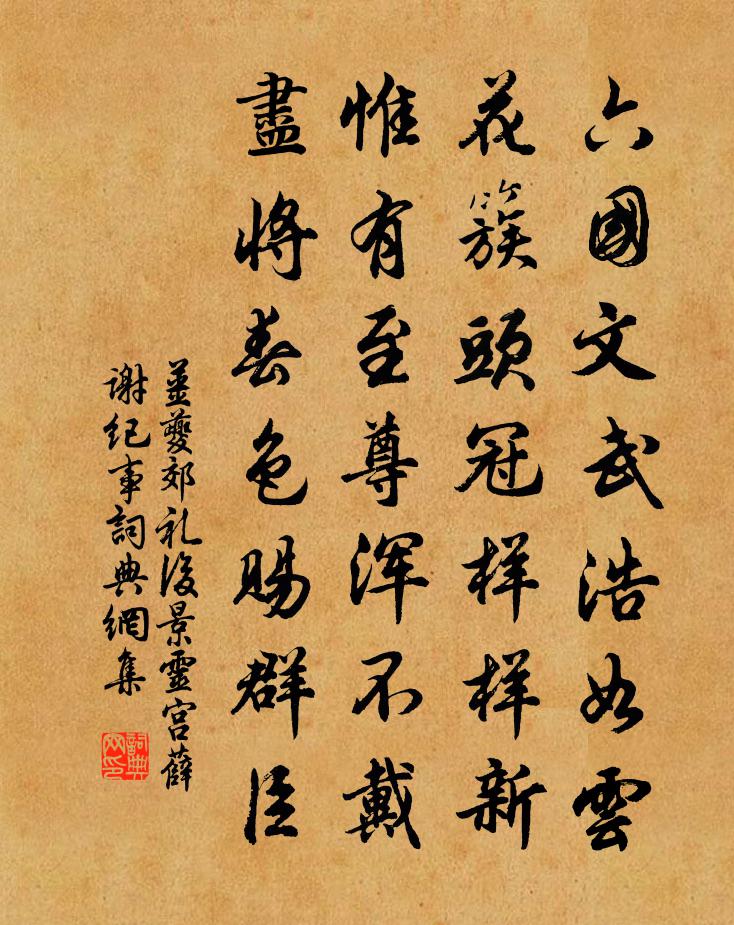 六國文武浩如雲
花簇頭冠样样新
惟有至尊浑不戴
盡將春色賜群臣
薑夔郊礼後景靈宮薛
谢纪事詞典網集
詞典网印